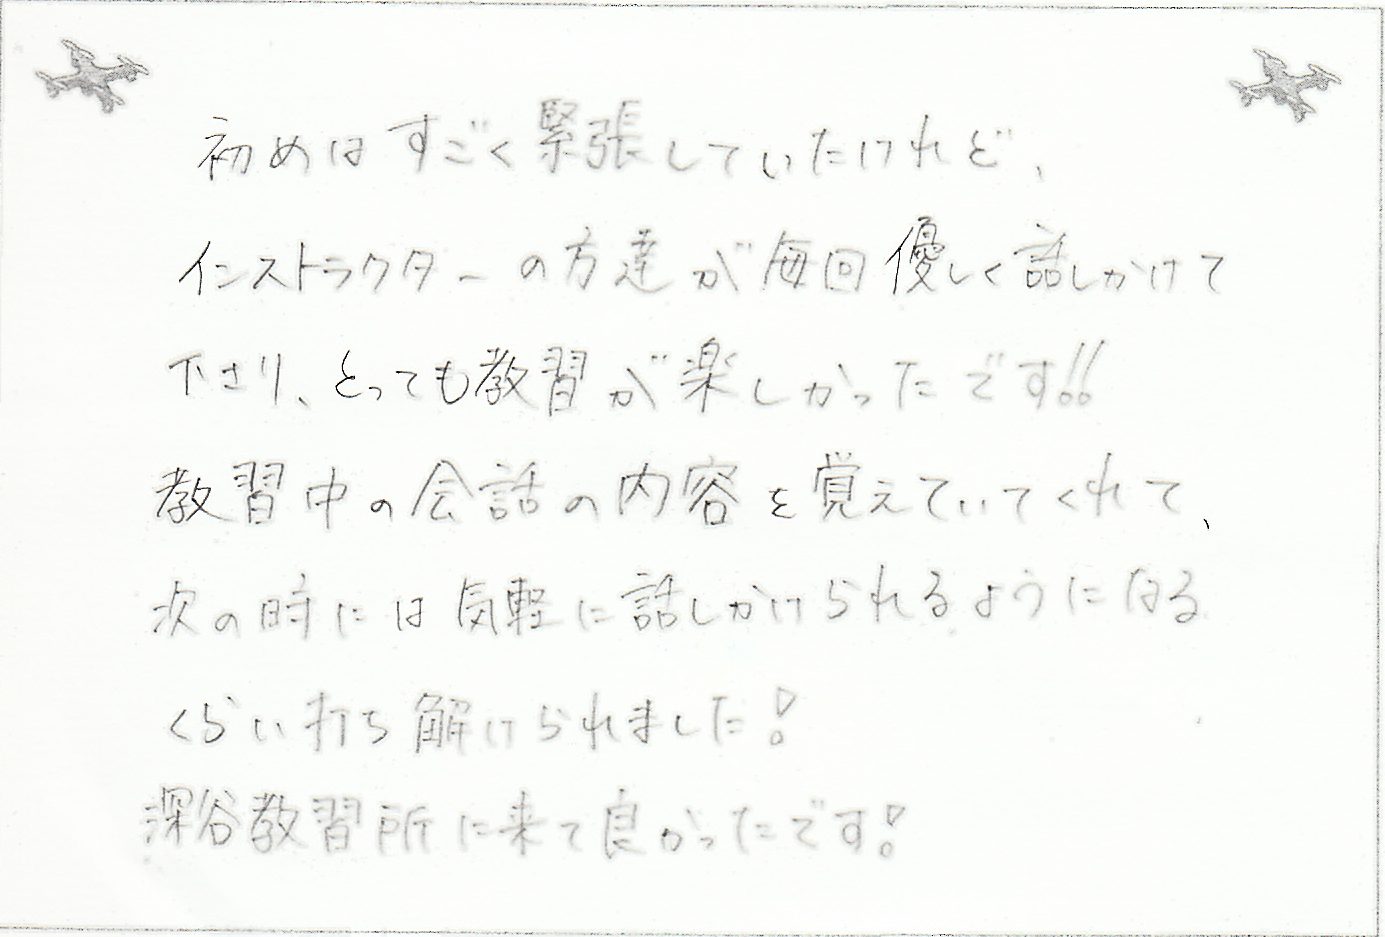 初めはすごく緊張していたけれど、
インストラクターの方達が毎回優しく話しかけて
下さり、とっても教習が楽しかったです!!
教習中の会話の内容を覚えていてくれて、
次の時には気軽に話しかけられるようになる
くらい打ち解けられました!
深谷教習所に来て良かったです!